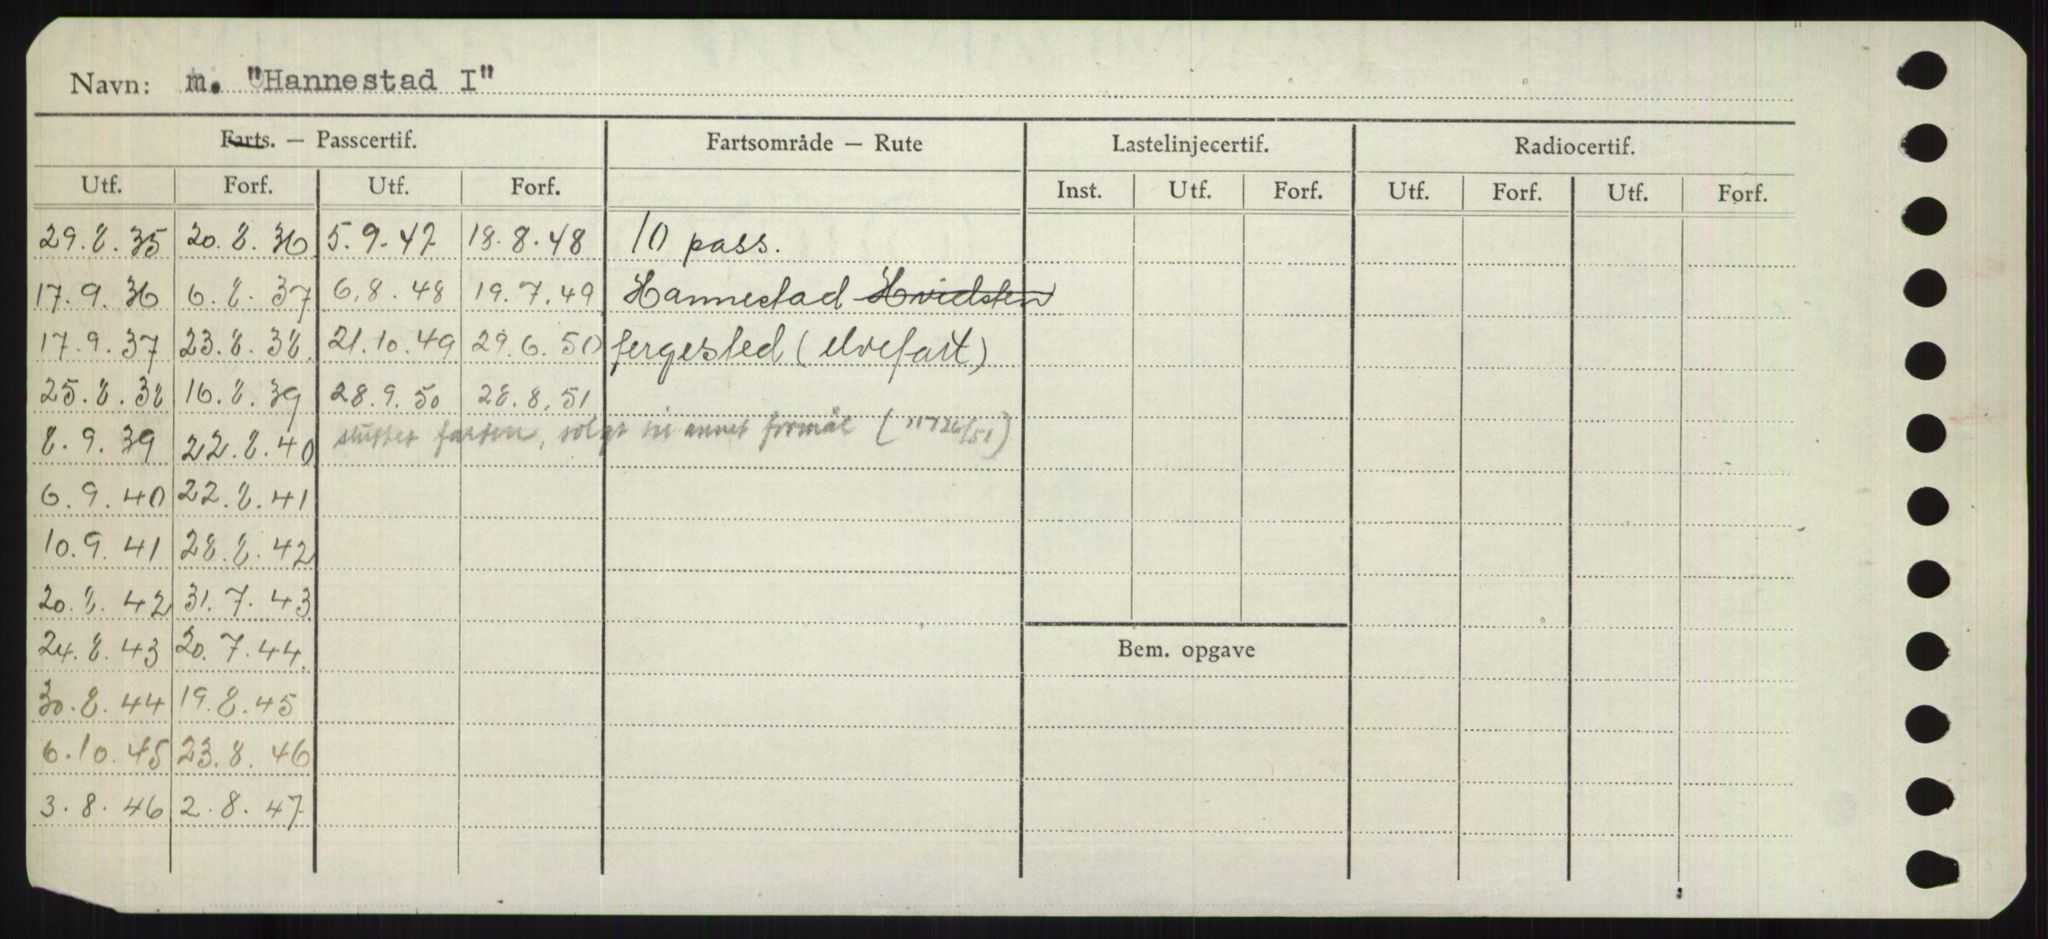 Navn: m. "Hannestad I"
Farts. — Passcertif. Fartsområde — Rute Lastelinjecertif. Radiocertif.
Utf. Forf. Utf. Forf. Inst. Utf. Forf. Utf. Forf. Utf. Forf.
29.8.35 20.8.36 5.9.47 18.8.48 10 pass.
17.9.36 6.8.37 6.8.48 19.7.49 Hannestad Hvidsten
17.9.37 23.8.38 21.10.49 29.6.50 fergested (elvefart)
25.8.38 16.8.39 28.9.50 28.8.51
8.9.39 22.8.40 sluttet farten, solgt til annet formål
6.9.40 22.8.41
10.9.41 28.8.42
20.8.42 31.7.43
24.8.43 20.7.44 Bem. opgave
30.8.44 19.8.45
6.10.45 23.8.46
3.8.46 2.8.47